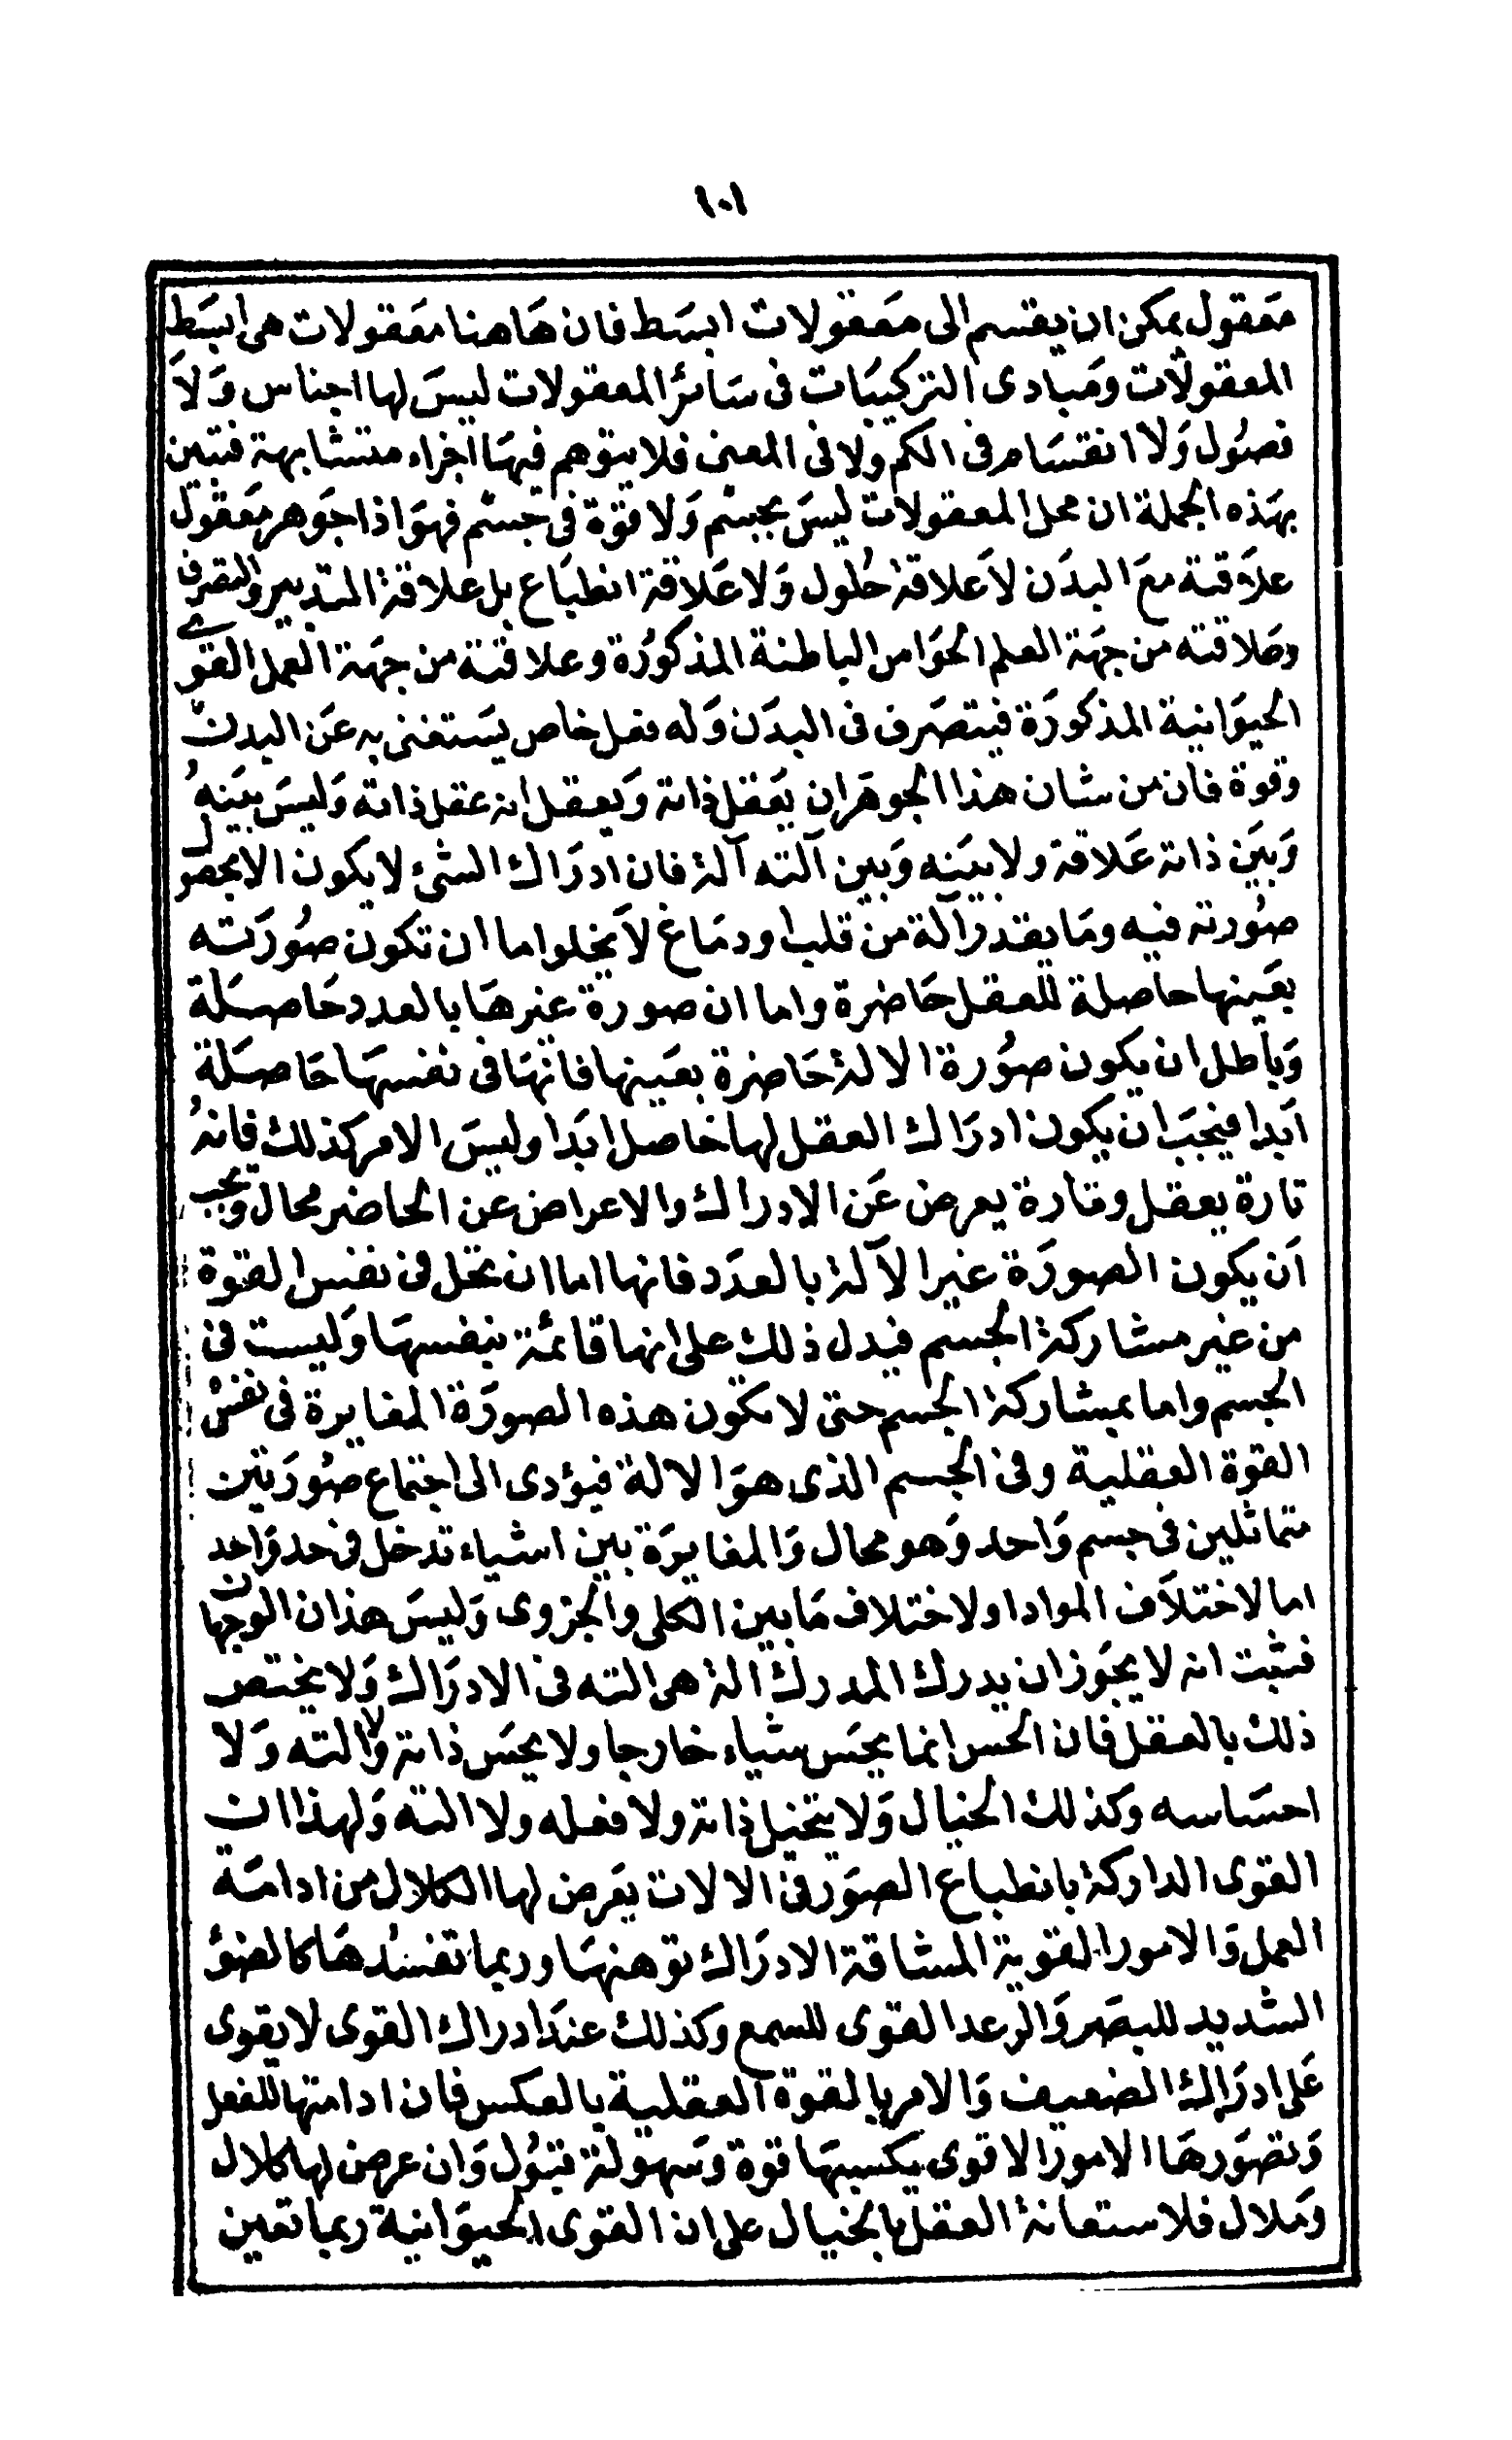 ١٠١
مَعقول يمكن ان يقسم الى مَعقولات ابسَط فان هَاهنا معَقولات هى ابسَط
المعقولات ومَبادى التركيبَات فى سَائر المعقولات ليسَ لها اجناس وَلاَ
فصُول وَلا انقسَام فى الكم ولا فى المعنى فلا يتوهم فيهَا اجزاء متشابهة فتبين
بهَذه الجملة ان محل المعقولات ليسَ بجسْم وَلا قوة فى جسْم فهوَ اذا جَوهر مَعقول
علاقته معَ البدَن لاَ علاقة حُلول وَلا عَلاقة انطبَاع بل علاقة التدبير والتصرف
وعلاقته من جهَة العلم الحوَاس الباطنة المذكورَة وعلاقته من جهَة العمل القوى
الحيوَانية المذكورَة فيتصَرف فى البدَن وَله فعل خاص يَستغنى به عَن البدن
وقوة فان من شان هذا الجوهَر ان يعَقل ذاته وَيعقل انه عقل ذاته وَليسَ بينَهُ
وَبيَن ذاته عَلاقة ولا بينَه وَبين آلته آلة فان ادرَاك الشئ لا يكون الا بحصول
صُورته فيه ومَا يقدر آلة من قلب او دمَاغ لاَ يخلو اما ان تكون صُورَته
بعَينها حاصلة للعقل حَاضرة واما ان صورة غيرهَا بالعدد حَاصلَة
وَباطل ان يكون صوُرة الالة حَاضرة بعَينها فانهَا فى نفسهَا حَاصلَة
ابَدا فيجبَ ان يكون ادرَاك العقل لها حَاصل ابَدا وليسَ الامر كذلك فانهُ
تارة يعقل وتارة يعرض عَن الادراك والاعراض عن الحاضر محال ويجب
اَن يكون الصورَة غير الآلة بالعدَد فانها اما ان تحل فى نفس القوة
من غير مشاركة الجسم فيدل ذلك على انها قائمة بنفسهَا وَليست فى
الجسم واما بمشاركة الجسم حتى لا تكون هذه الصورَة المغايرة فى نفس
القوة العقلية وفى الجسم الذى هوَ الالة فيؤدى الى اجتماع صُورَتين
متماثلين فى جسم وَاحد وَهو محال وَالمغايرَة بين اشياء تدخل فى حد وَاحد
اما لاختلاَف المواد او لاختلاف مَا بين الكلى والجزوى وَليسَ هذان الوجهان
فثبت انه لا يجوَز ان يدرك المدرك الة هى الته فى الادرَاك وَلا يختص
ذلك بالعقل فان الحس انما يحسَ شياء خارجا ولا يحسَ ذاته ولا الته وَلا
احسَاسه وكذلك الخيال وَلا يتخيل ذاته ولا فعله ولا الته وَلهذا ان
القوى الداركة بانطباع الصوَر فى الالات يعَرض لها الكلال من ادامَة
العمل وَالامور القوية المشاقة الادرَاك توهنهَا وربما تفسُدهَا كالضوء
الشديد للبصَر وَالرعد القوى للسمع وكذلك عندَ ادراك القوى لا يقوى
عَلى ادرَاك الضعيف وَالامر بالقوة العقلية بالعكس فان ادامتها للفعل
وَتصَورهَا الامور الاقوى يكسبهَا قوة وسَهولة قبُول وَان عرض لها كلال
ومَلال فلاستعانة العقل بالخيال على ان القوى الحيوَانية ربما تعين